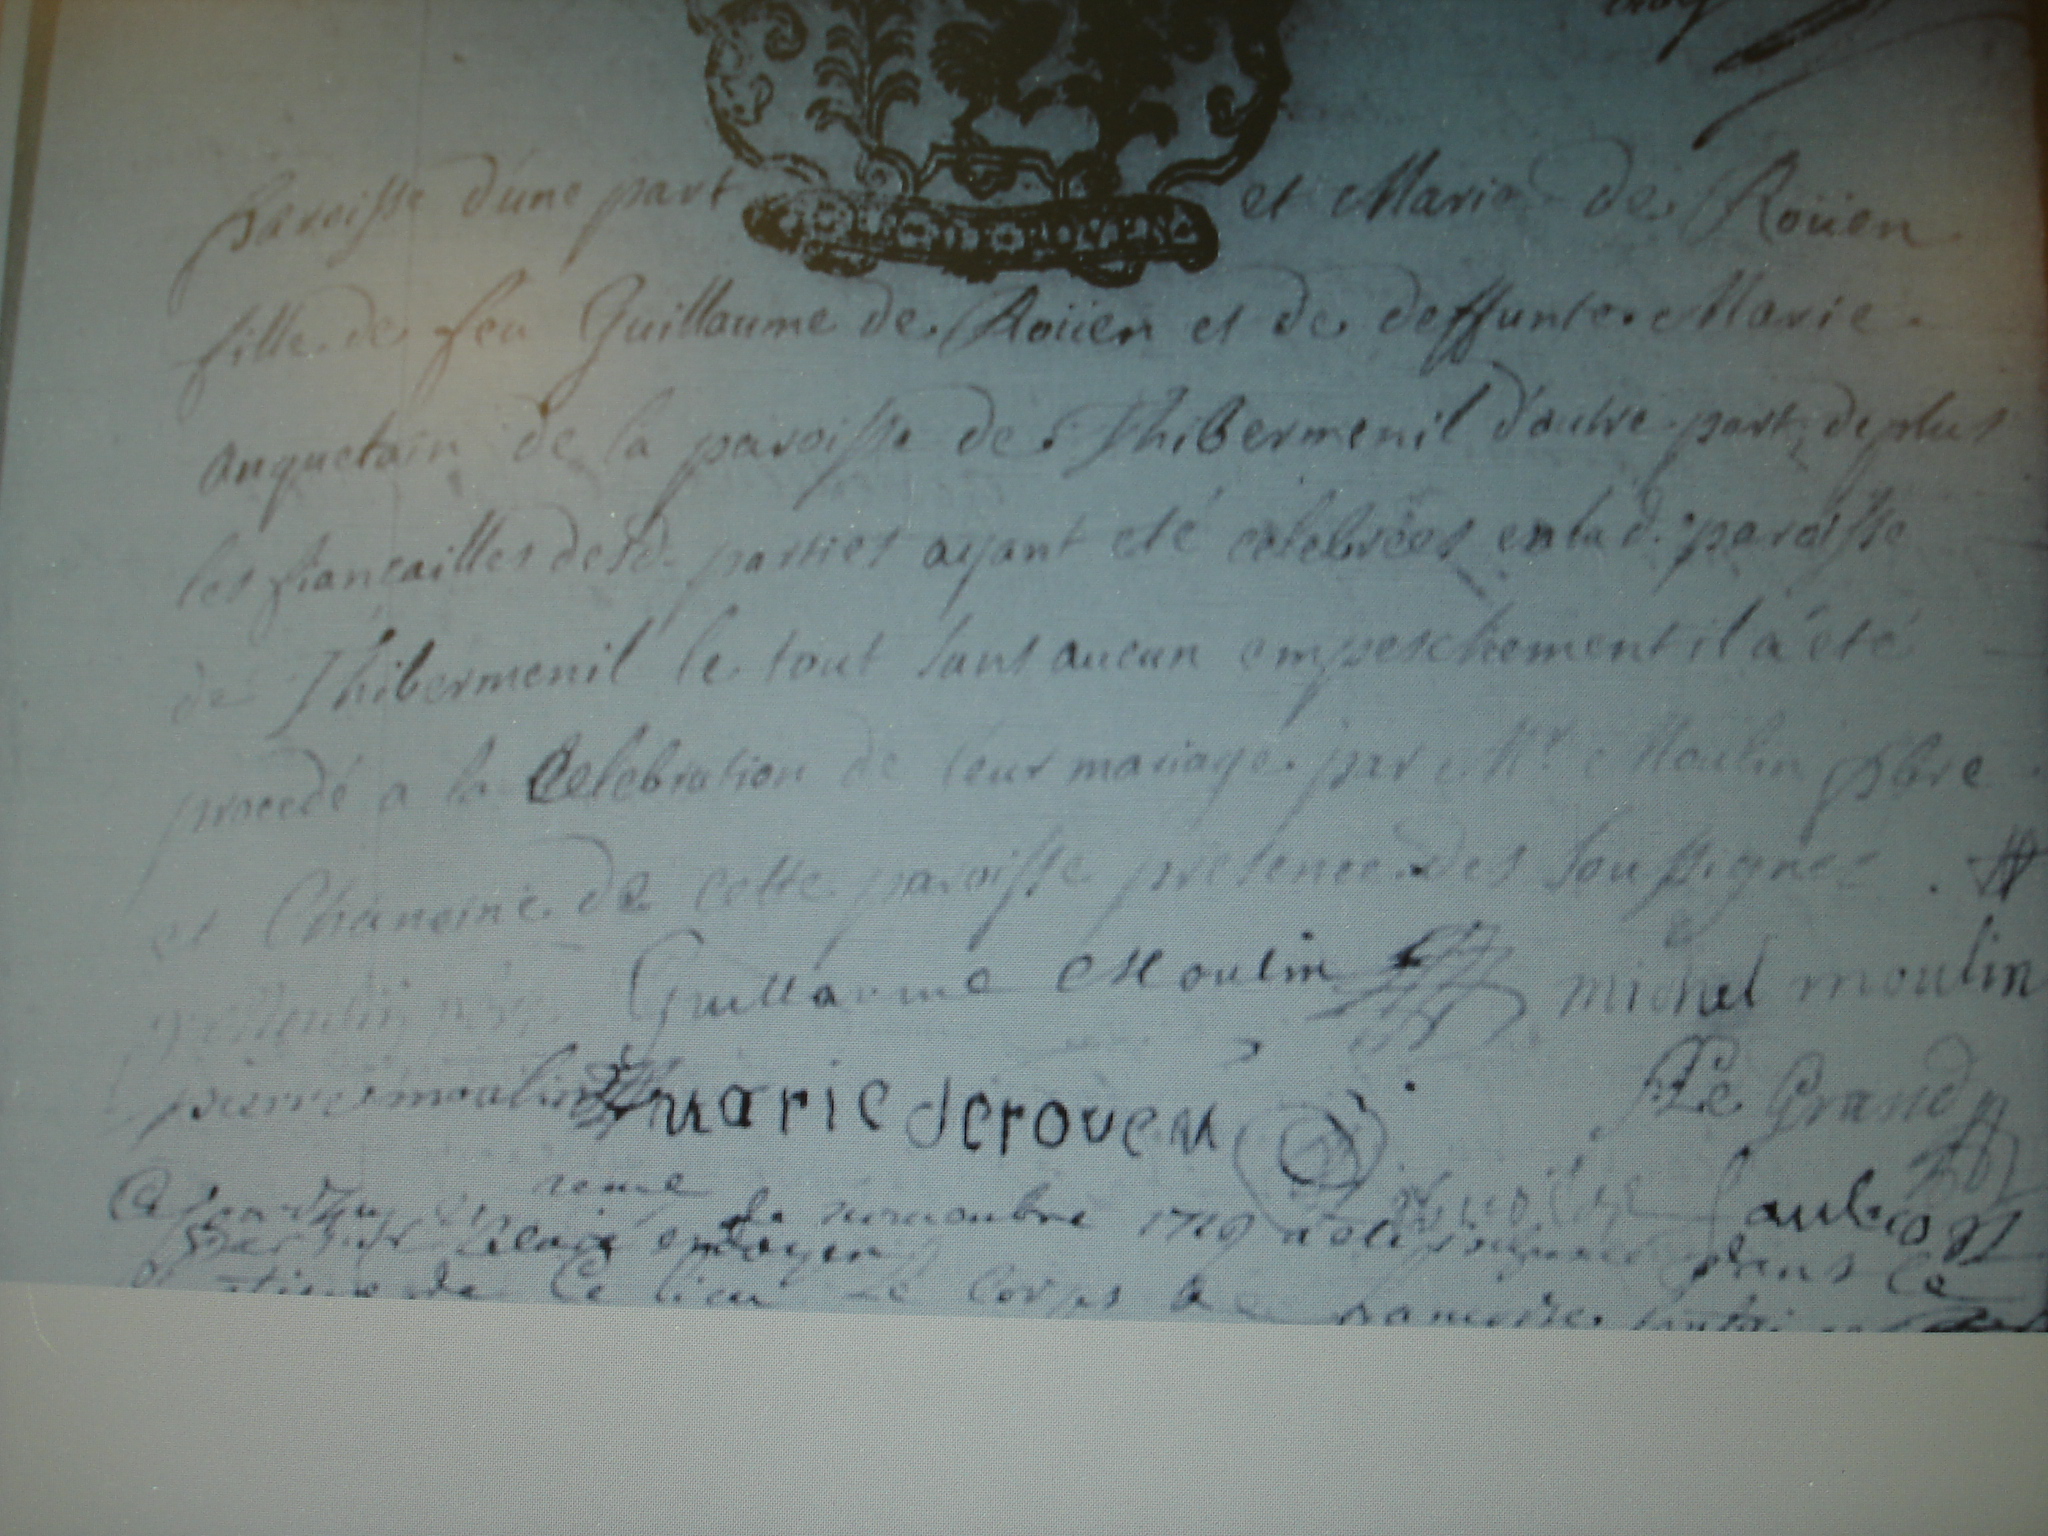 paroisse d'une part et Marie de Roüen
fille de feu Guillaume de Roüen et de deffunte Marie
anquetain de la paroisse de Thibermenil d'autre part, de plus
les fiancailles desd. parties ayant eté celebrées en lad. paroisse
de Thibermenil le tout sans aucun empeschement il a été
procedé a la Celebration de leur mariage par Mr. Moulin pbre
et Chanoine de cette paroisse presence des soussignez
Moulin Guillaume Moulin michel moulin
pierre moulin marie derouen Le Grand
de novembre 1719 dans ce
de ce lieu le corps de francoise